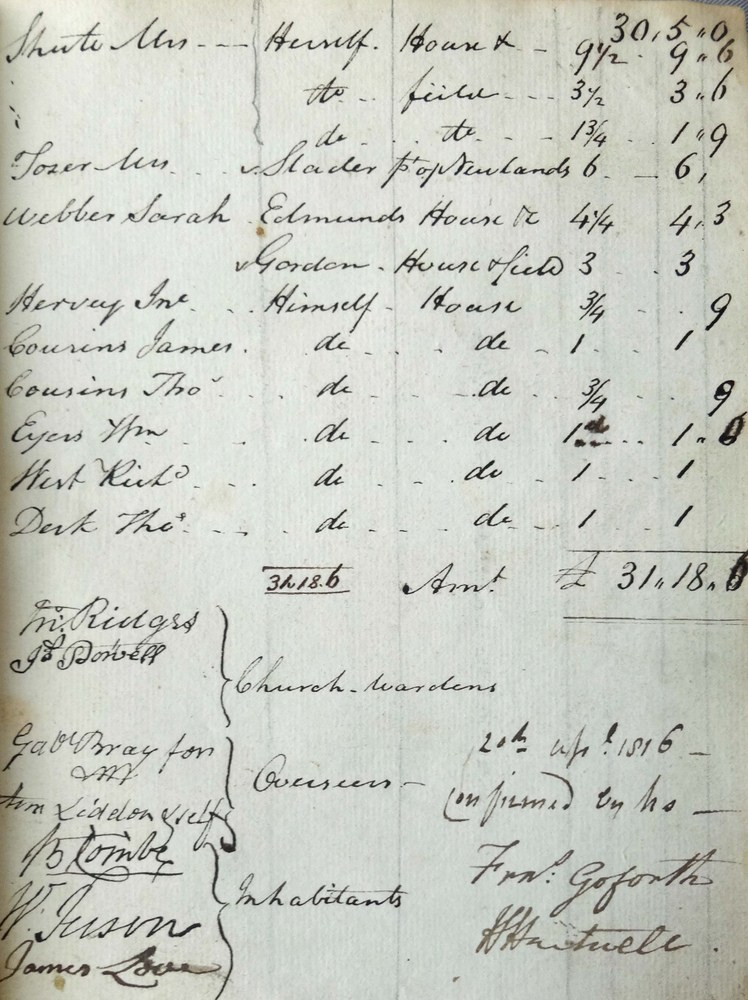 30,5,,0
Shute Mrs - - - Herself. House & - 9½ 9,,6
do - - feild - - - 3½ 3,,6
de do 1¾ 1,,9
Tozer Mrs Slader pt. of Newlands 6 6,
Webber Sarah Edmunds House & 4¼ 4,3
Gordon - House & field 3 3
Hervey Jno. Himself - House ¾ 9
Cousins James. de de 1 1
Cousins Thos. de de ¾ 9
Eyers Wm de de 1 1,,0
West Richd. de de 1 1
Derk Thos. de de 1 1
31.18.6 Amt. £ 31,,18,,6
Jno. Ridges
Js. Dowell
Church-wardens
Gabl. Bray for
Overseers -
Wm Liddon & self
20th Apl. 1816 -
Confirmed by us -
B Combe
W. Juson
James Love
Inhabitants
Frns. Goforth
H Hartwell